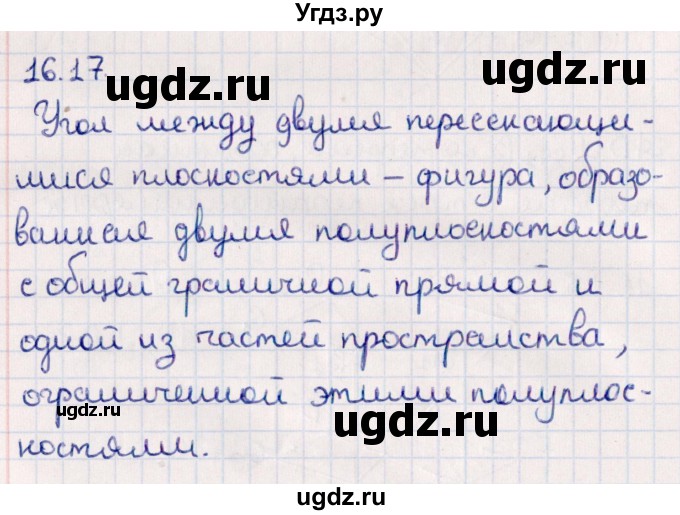 Угдз.ру
16.17
ugdz.ru
ugdz.ru
Угол между двумя пересекающи-
мися плоскостями – фигура, образо-
ванная двумя полуплоскостями
с общей граничной прямой и
одной из частей пространства,
ugdz.ru
ограниченной этими полуплос-
ugdz.ru
костями.
ugdz.ru